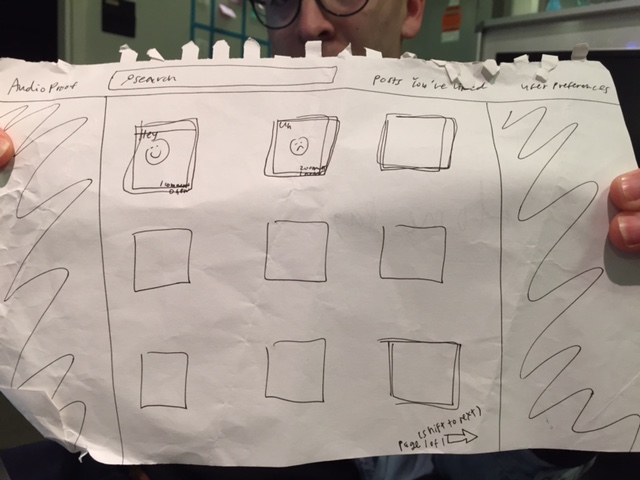 AudioProof
search
Posts You've Liked
User Preferences
Hey
Uh
(shift to next)
Page 1 of 1